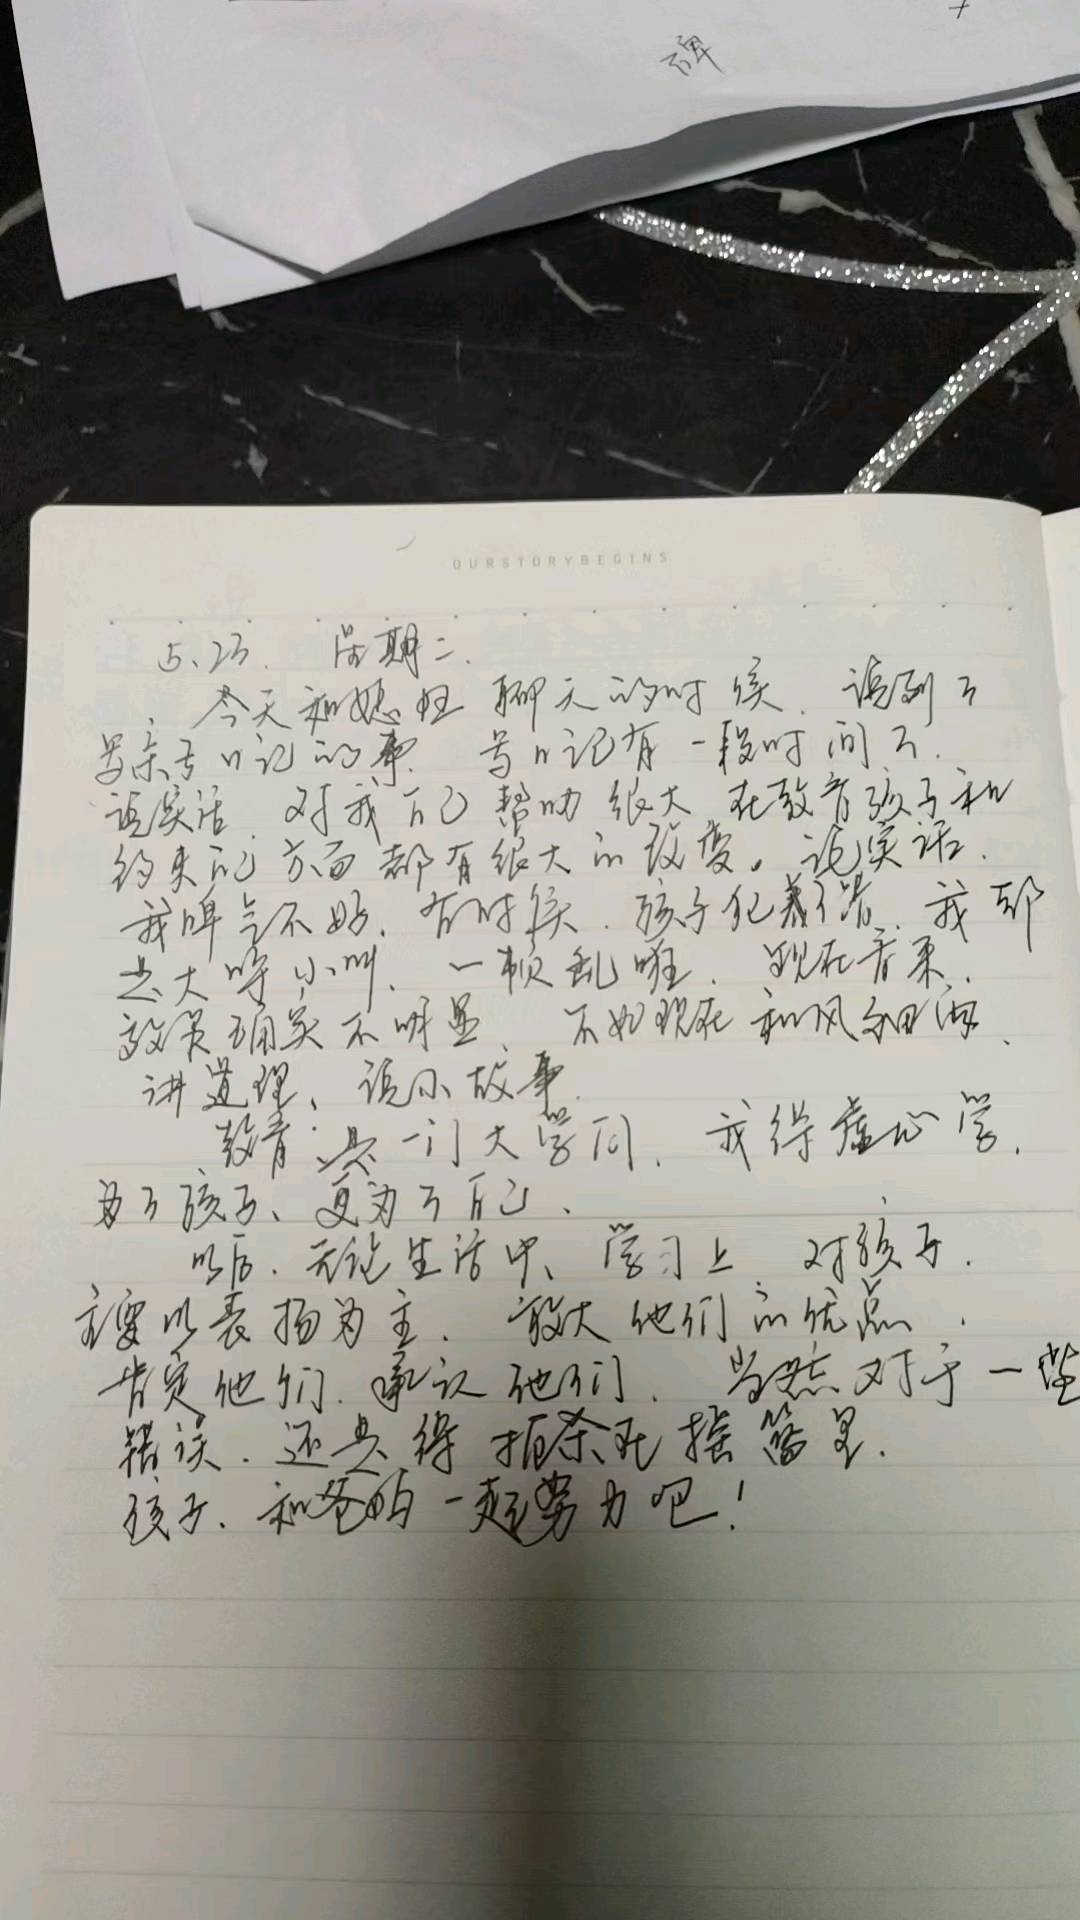 碑
OURSTORYBEGINS
5.23. 星期二.
今天和媳妇聊天的时候、说到了
写亲子日记的事. 写日记有一段时间了.
说实话、对我自己帮助很大、在教育孩子和
约束自己方面都有很大的改变。说实话、
我脾气不好、有时候、孩子犯错、我都
是大呼小叫、一顿乱喷、现在看来、
效果确实不明显、不如现在和风细雨、
讲道理、说小故事.
教育是一门大学问、我得虚心学、
为了孩子、更为了自己、
以后、无论生活中、学习上、对孩子、
主要以表扬为主、放大他们的优点、
肯定他们、承认他们、当然对于一些
错误、还是得扼杀在摇篮里.
孩子、和爸妈一起努力吧！